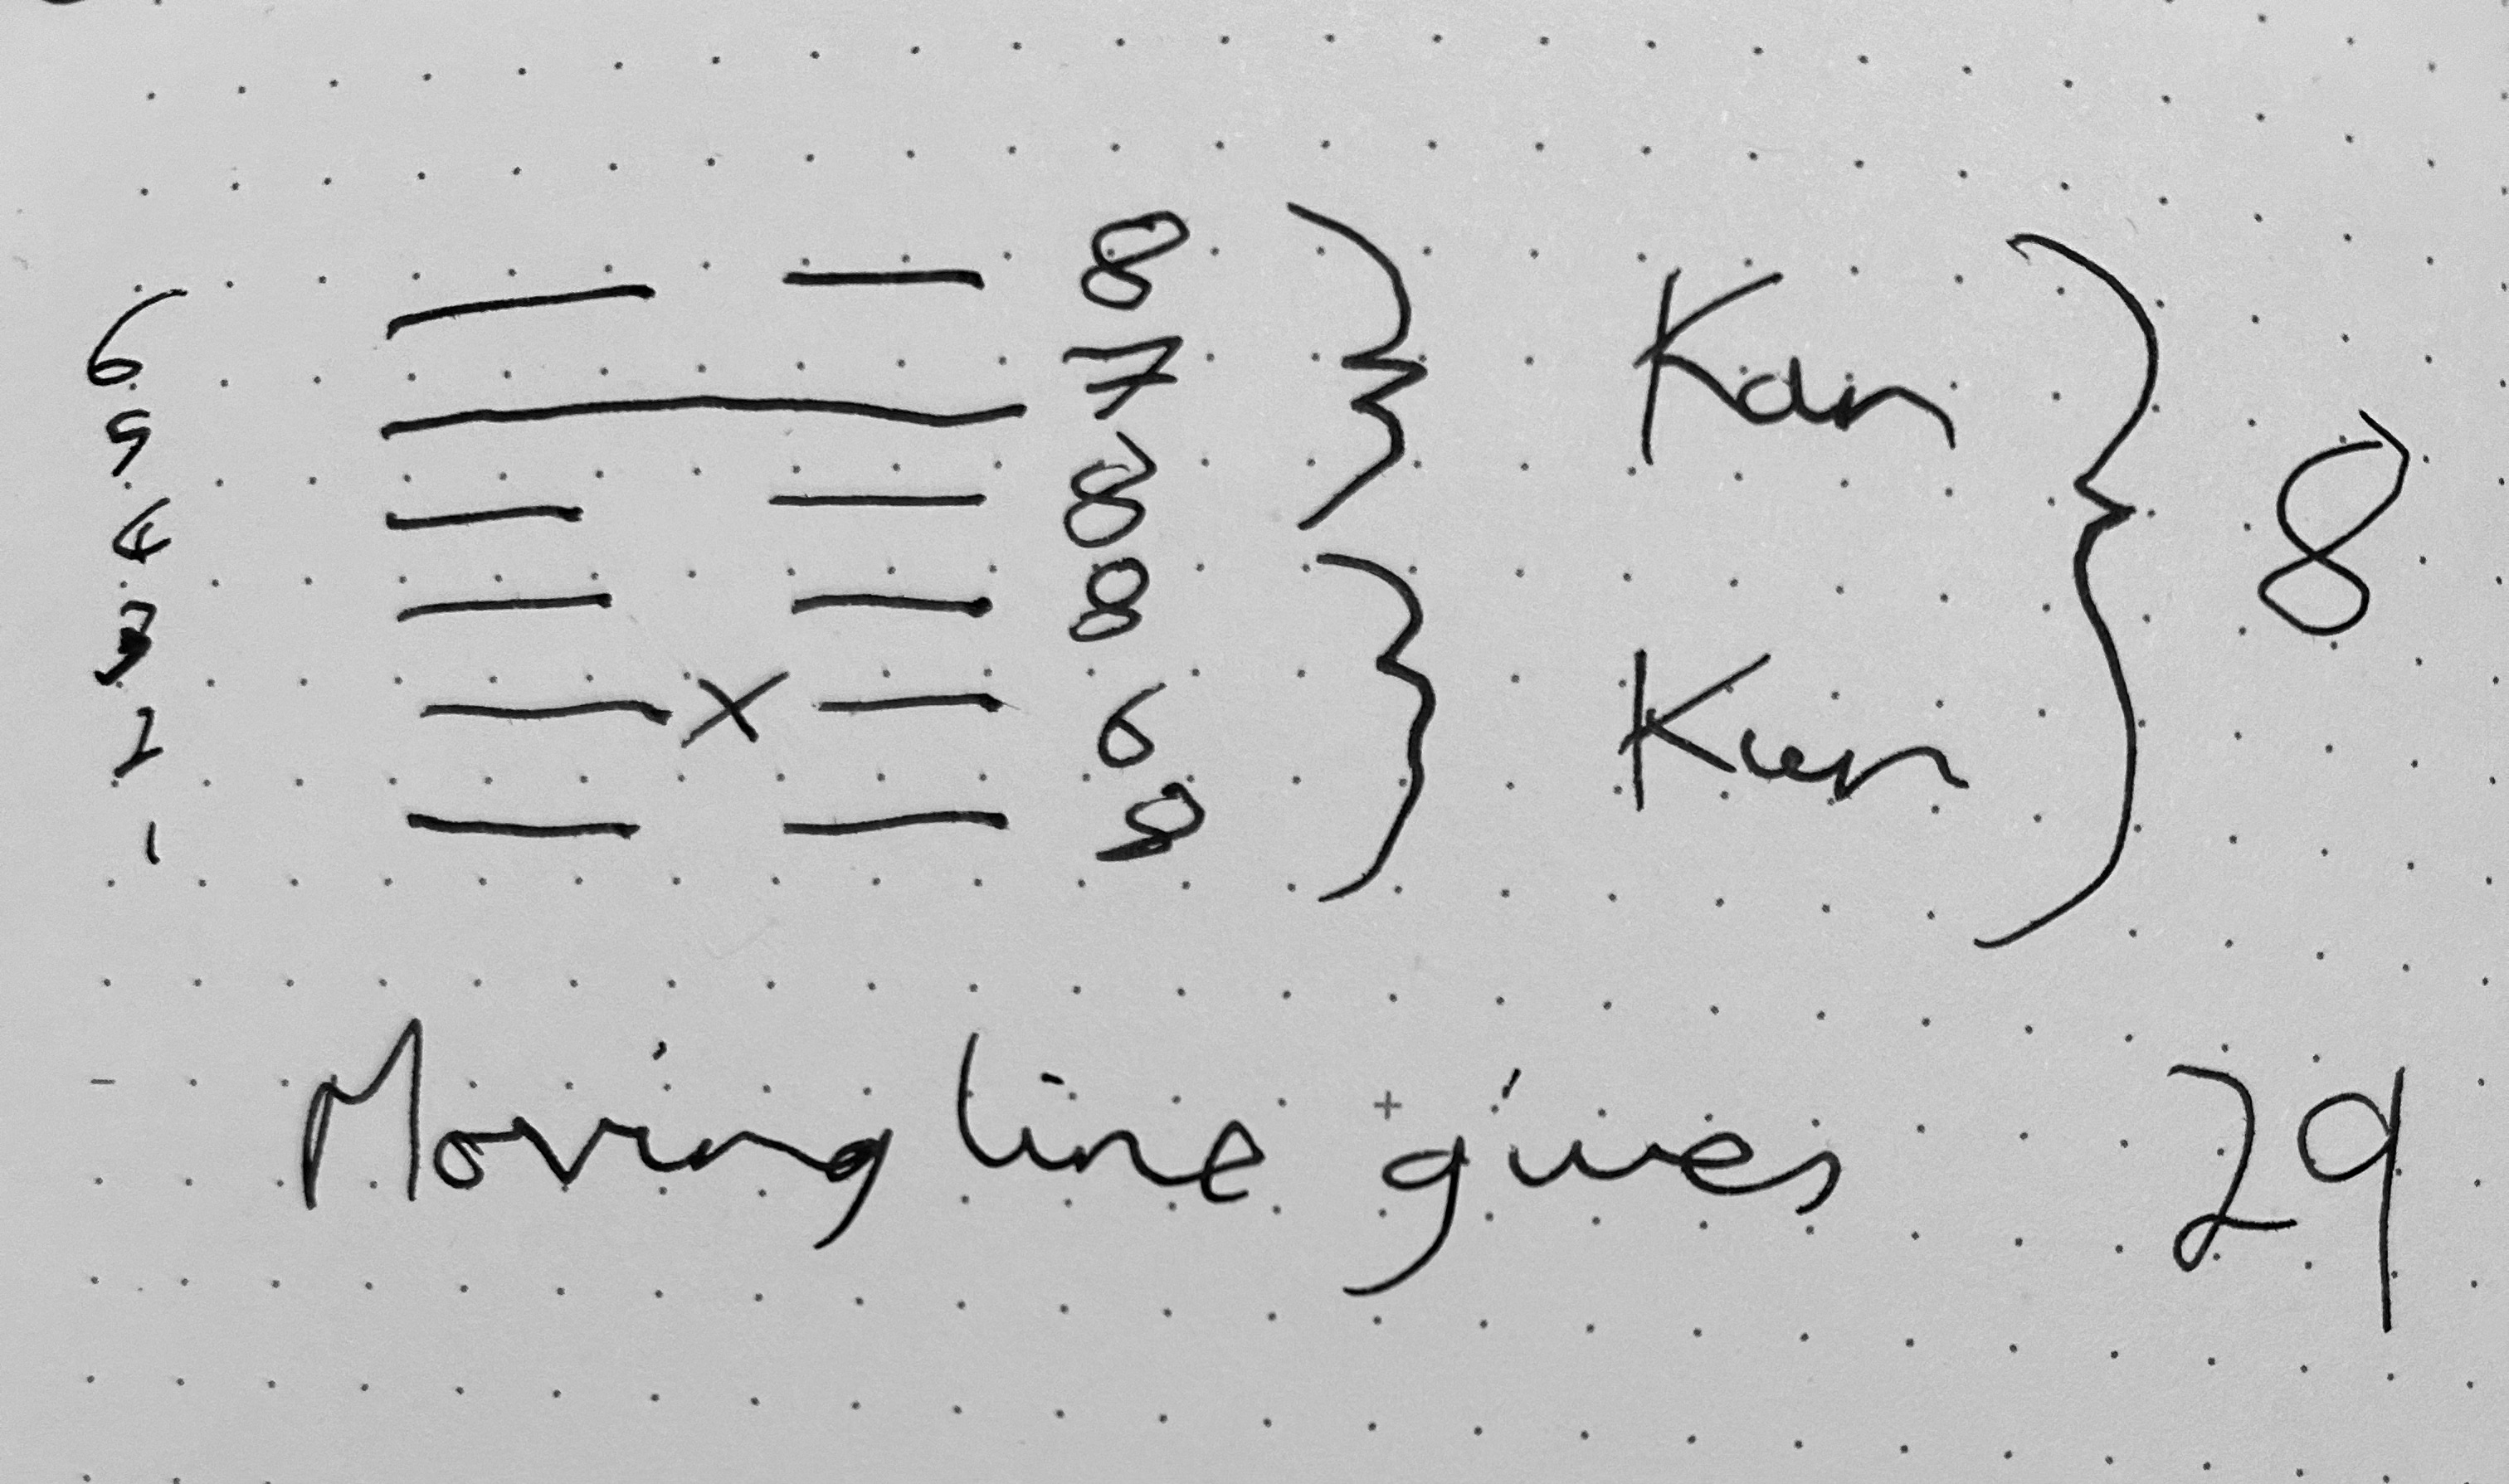 6 8
5 7 Kan
4 8
8
3 8
2 x 6 Kun
1 8
Moving line gives 29